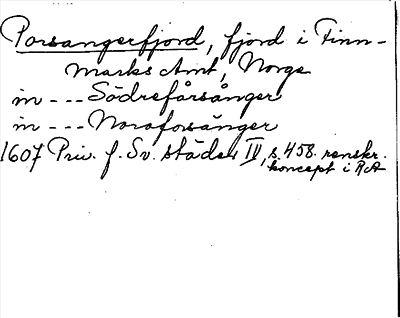 Porsangerfjord, fjord i Finn-
marks Amt, Norge
in --- Södreforsånger
in --- Noraforsånger
1607 Priv. f. Sv. städer IV, s. 458. renskr.
koncept i RA